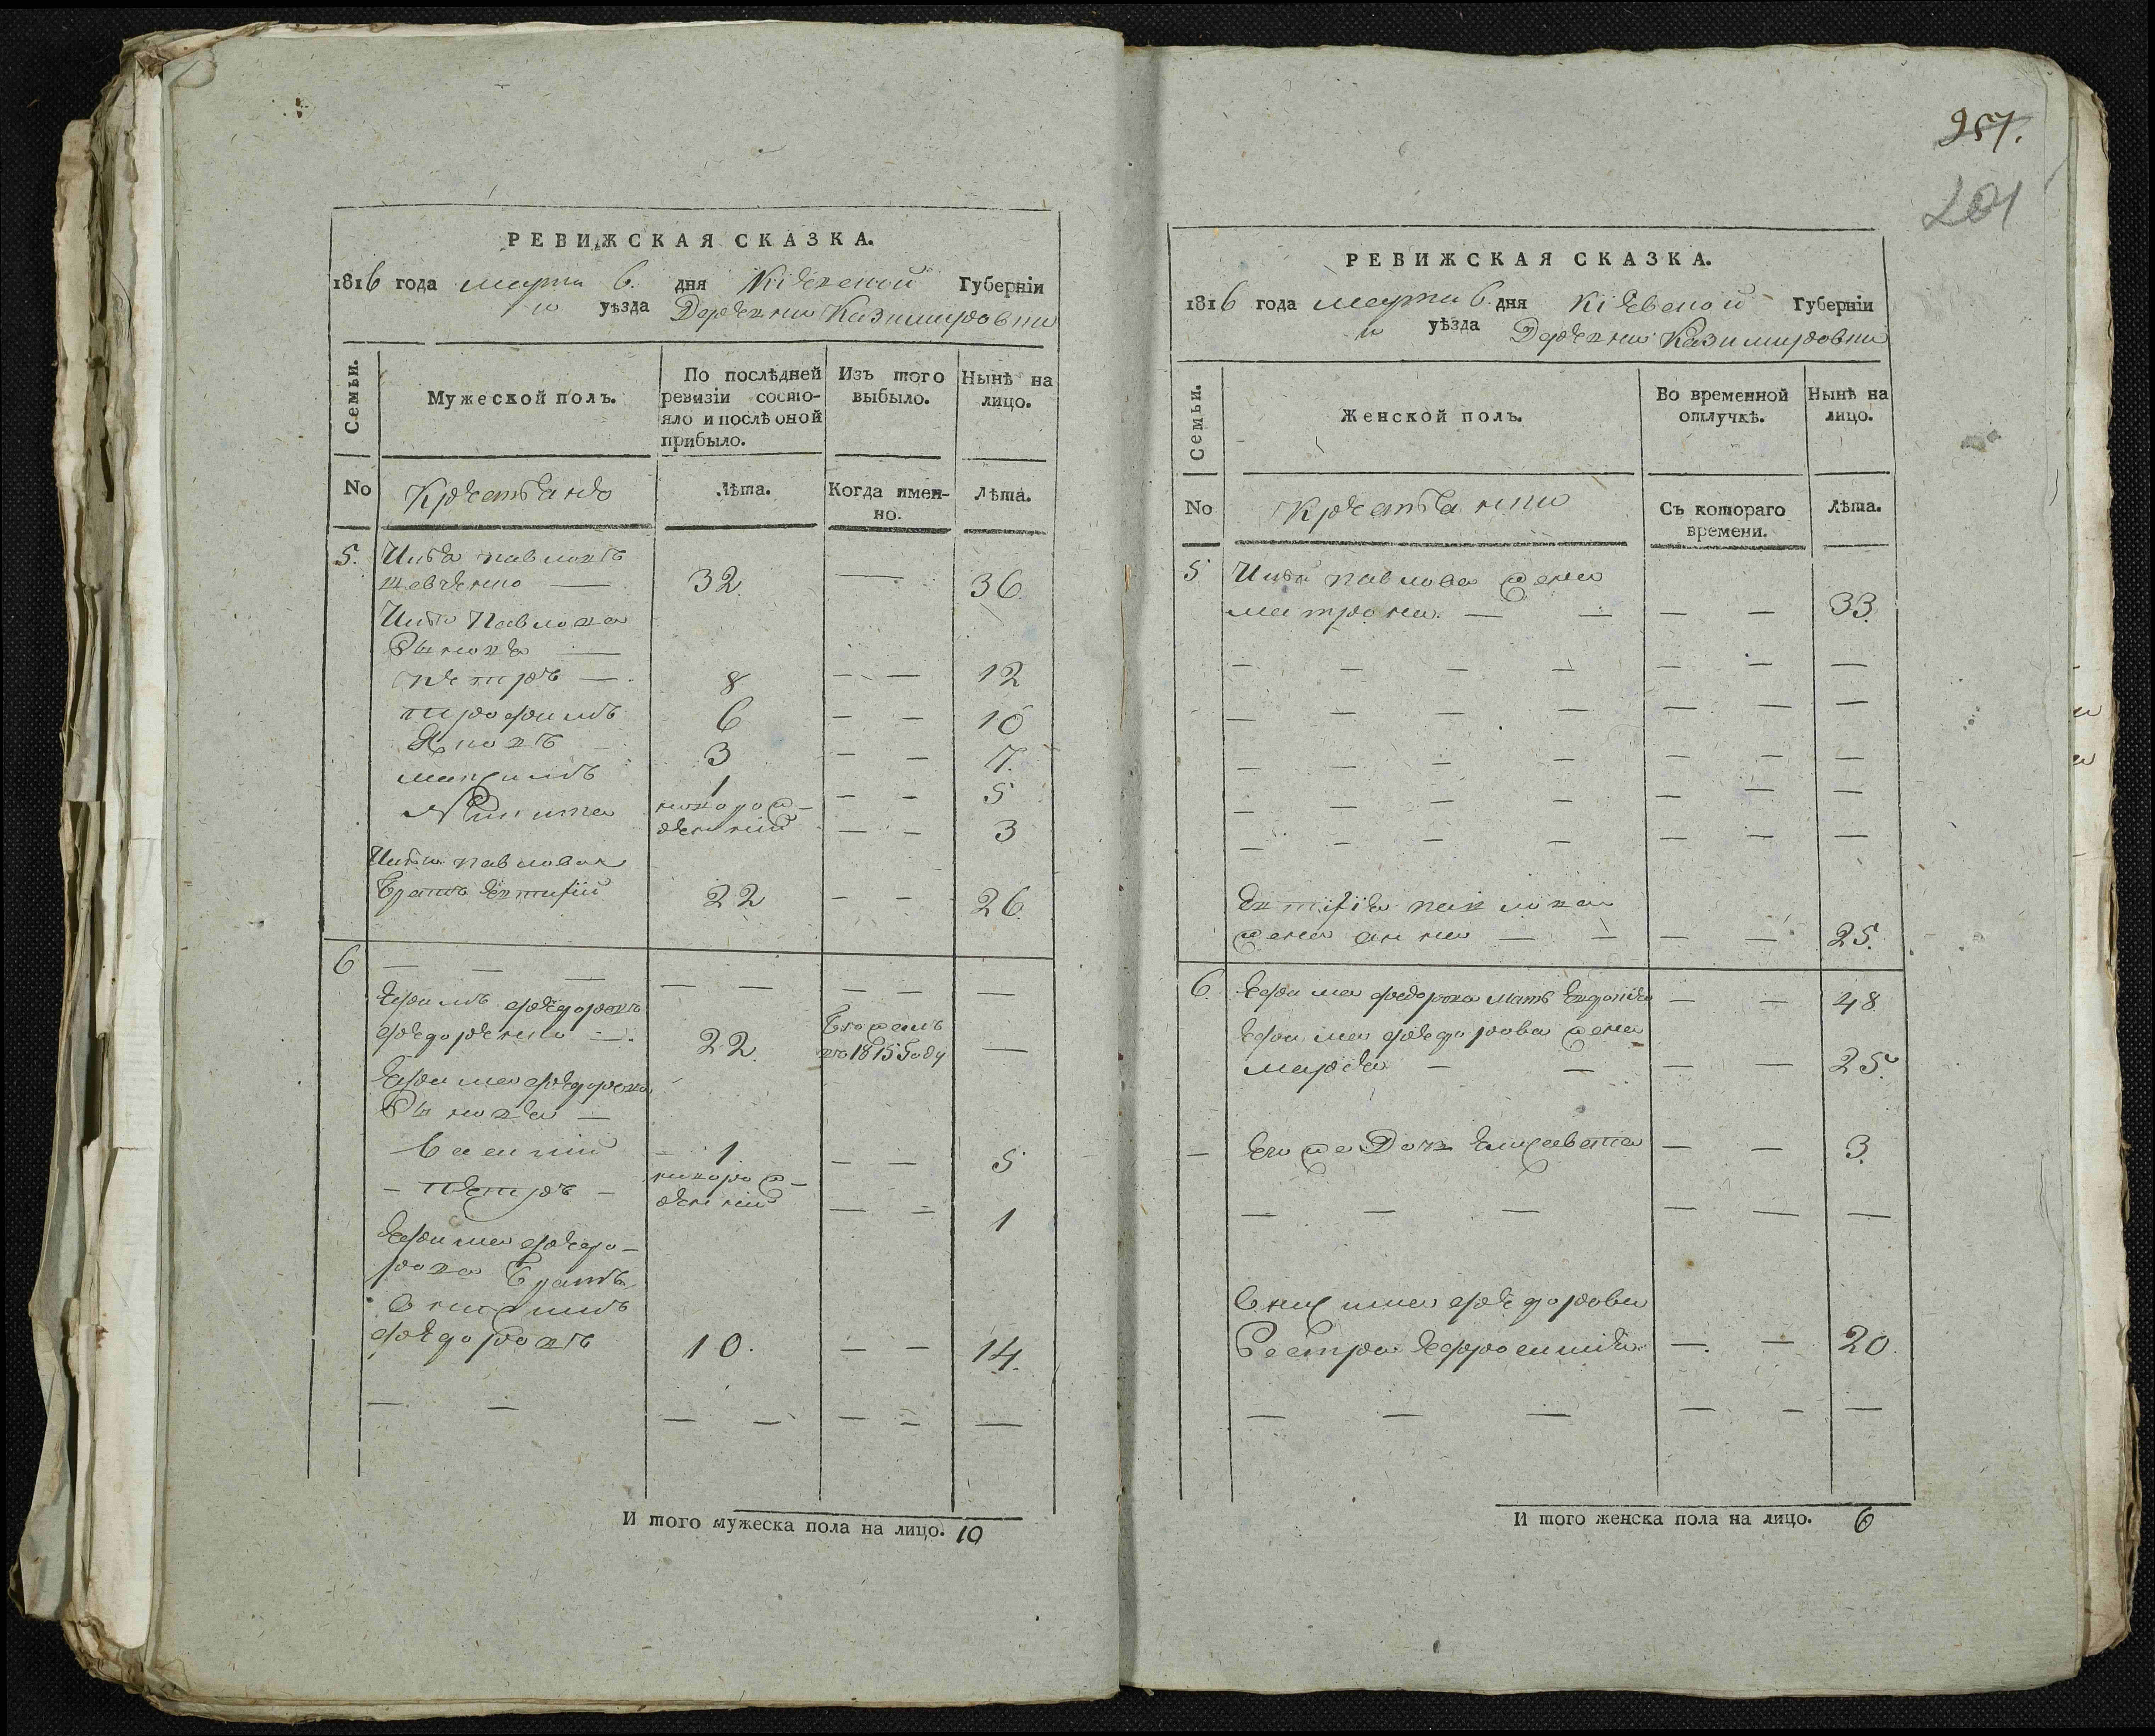 257.
201
РЕВИЖСКАЯ СКАЗКА.
1816 года марта 6. дня Кіевской Губерніи
уѣзда Деревни Казимировки
Семьи.
Мужеской полъ.
По послѣдней ревизіи состо-
яло и послѣ оной
прибыло.
Изъ того
выбыло.
Нынѣ на
лицо.
No
Крестьяне
Лѣта.
Когда имен-
но.
Лѣта.
5. Илья павловъ
шевченко — 32. — 36.
Ильи Павлова
Сыновья —
петръ — 8 — — 12
трофимъ 6 — — 10
Яковъ 3 — — 7.
максимъ 1 — — 5
Никита новорож-
денный — — 3
Ильи павлова
братъ Евтифій 22 — — 26.
6 — — — — — — — —
Ефимъ федоровъ
федоренко —. 22. бежалъ
въ 1815 году —
Ефима федорова
Сыновья —
Василий 1 — — 5
— петръ — новорож-
денный — — 1
Ефима федо-
рова братъ
Онисимъ
федоровъ 10. — — 14.
— — — — — — —
И того мужеска пола на лицо. 10
РЕВИЖСКАЯ СКАЗКА.
1816 года марта 6. дня Кіевской Губерніи
уѣзда Деревни Казимировки
Семьи.
Женской полъ.
Во временной
отлучкѣ.
Нынѣ на
лицо.
No
Крестьянки
Съ котораго
времени.
Лѣта.
5 Ильи павлова жена
матрона. — — — — 33.
— — — — — — —
— — — — — — —
— — — — — — —
— — — — — — —
— — — — — — —
Евтифія павлова
жена анна — — — — 25.
6. Ефима федорова мать Евдокія — — 48
Ефима федорова жена
марія — — — — 25.
— Его же Дочь Елисавета — — 3.
— — — — — —
Онисима федорова
Сестра Ефросинія — — 20.
— — — — — —
И того женска пола на лицо. 6